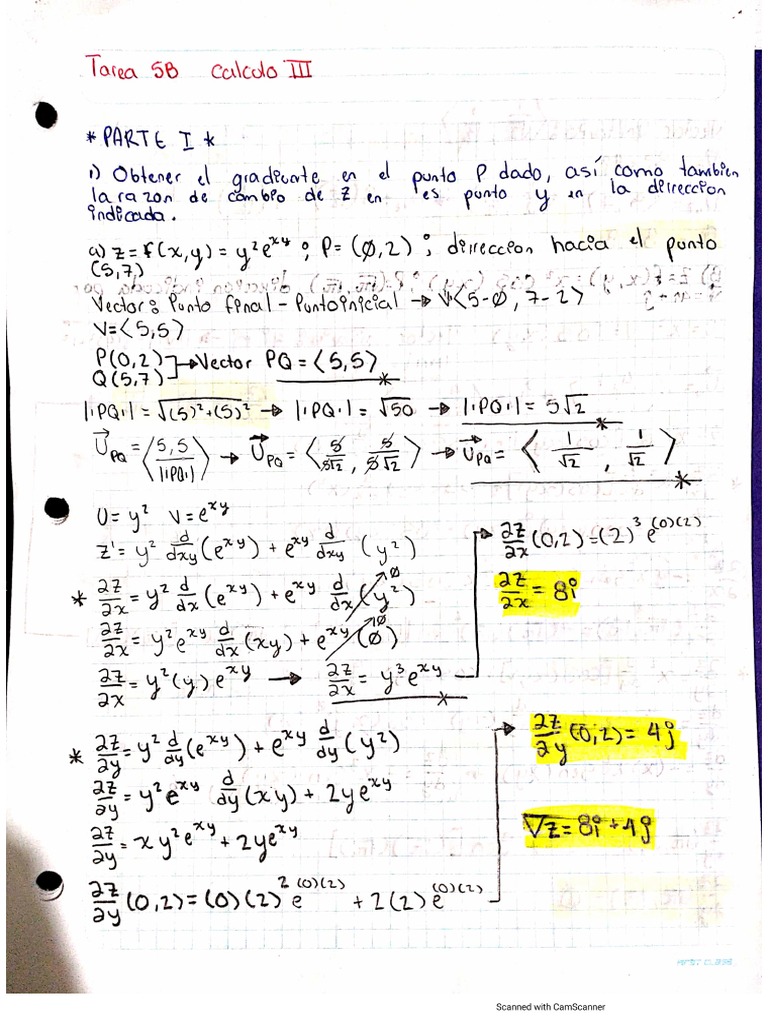 Tarea 5B Calculo III
* PARTE I *
1) Obtener el gradiente en el punto P dado, así como tambien
la razon de cambio de Z en es punto y en la direccion
indicada.
a) z = f(x,y) = y²e^xy ; P = (0,2) ; direccion hacia el punto
(5,7)
Vector: Punto final - Punto inicial → V<5-0, 7-2>
V=<5,5>
P(0,2)
Q(5,7) → Vector PQ = <5,5>
|PQ| = √(5)²+(5)² → |PQ| = √50 → |PQ| = 5√2
U_PQ = <5,5 / |PQ|> → U_PQ = <5/5√2, 5/5√2> → U_PQ = <1/√2, 1/√2>
U = y² V = e^xy
z' = y² d/dxy (e^xy) + e^xy d/dxy (y²)
* ∂z/∂x = y² d/dx (e^xy) + e^xy d/dx (y²) 0
∂z/∂x = y²e^xy d/dx (xy) + e^xy (0) 0
∂z/∂x = y²(y)e^xy → ∂z/∂x = y³e^xy
∂z/∂x (0,2) = (2)³ e^(0)(2)
∂z/∂x = 8i
* ∂z/∂y = y² d/dy (e^xy) + e^xy d/dy (y²)
∂z/∂y = y²e^xy d/dy (xy) + 2ye^xy
∂z/∂y = xy²e^xy + 2ye^xy
∂z/∂y (0,2) = (0)(2)² e^(0)(2) + 2(2)e^(0)(2)
∂z/∂y (0,2) = 4j
∇z = 8i + 4j
FIRST CLASS
Scanned with CamScanner